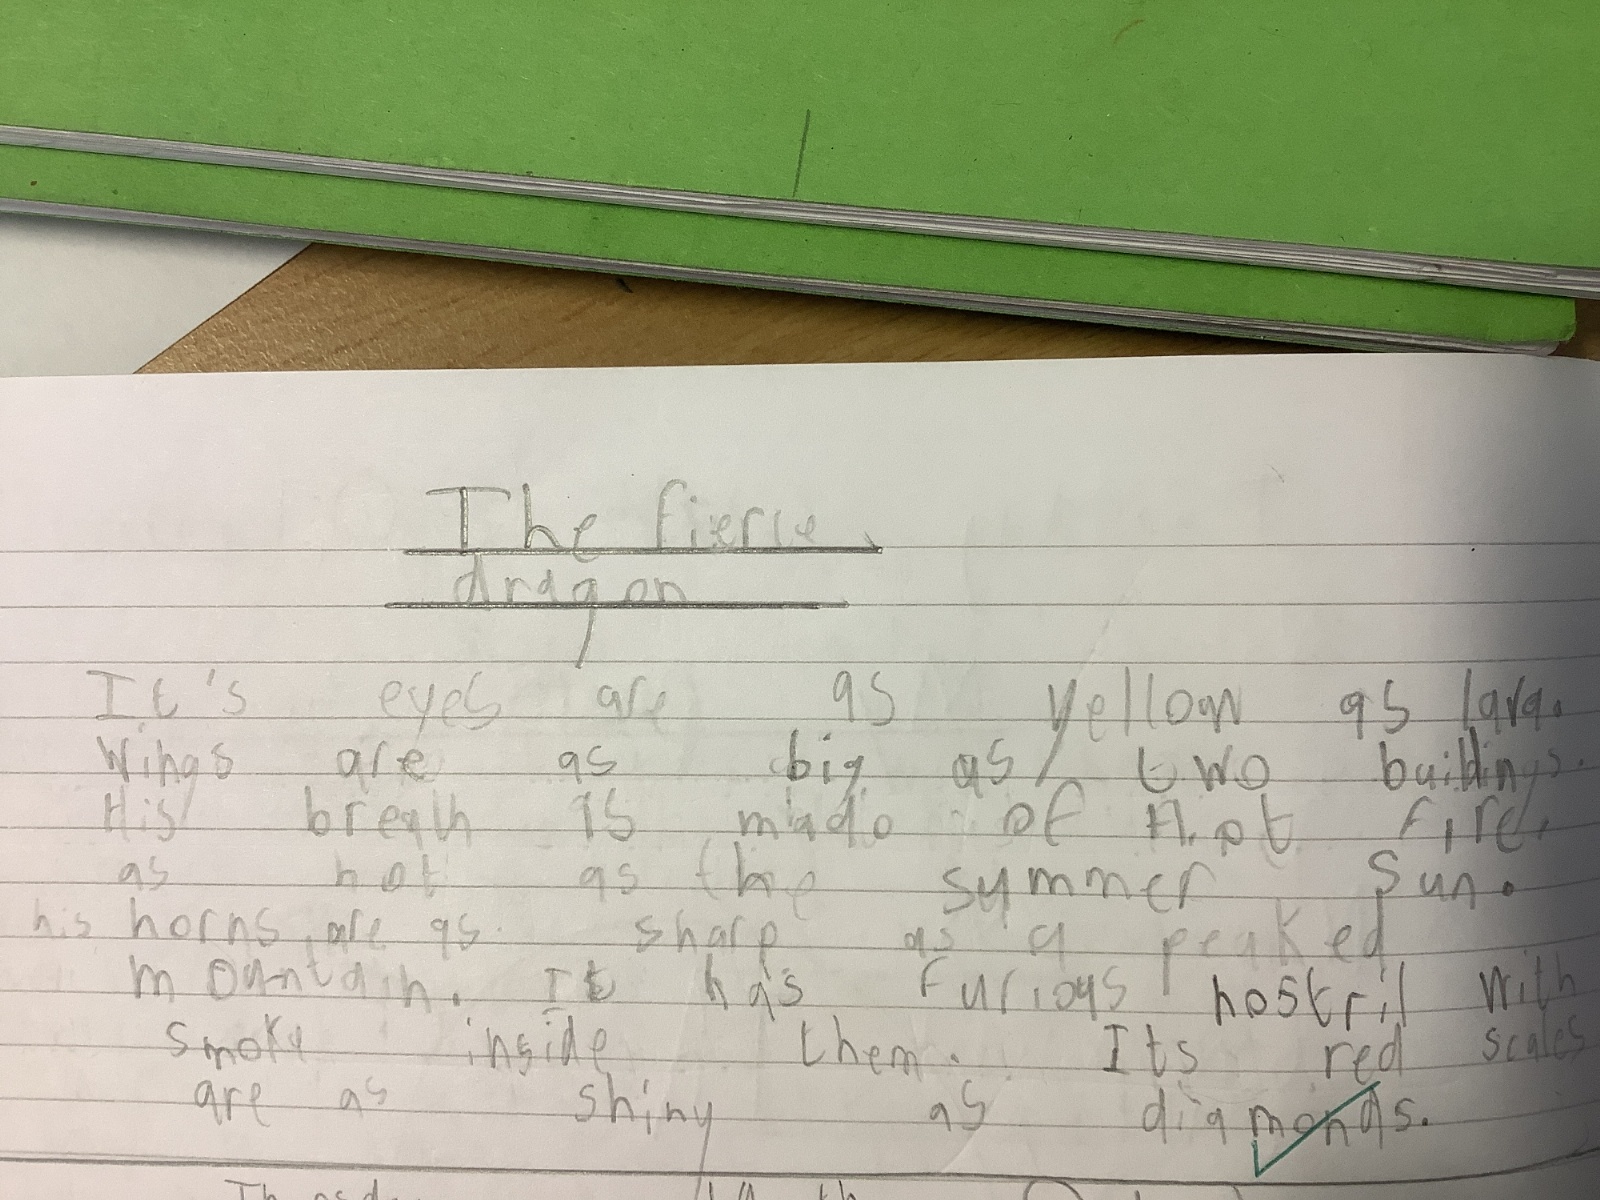 The fierce
dragon
It's eyes are as yellow as lava.
Wings are as big as two buildings.
His breath is made of Hot fire,
as hot as the summer Sun.
his horns are as sharp as a peaked
mountain. It has furious nostril with
smoky inside them. Its red scales
are as shiny as diamonds.